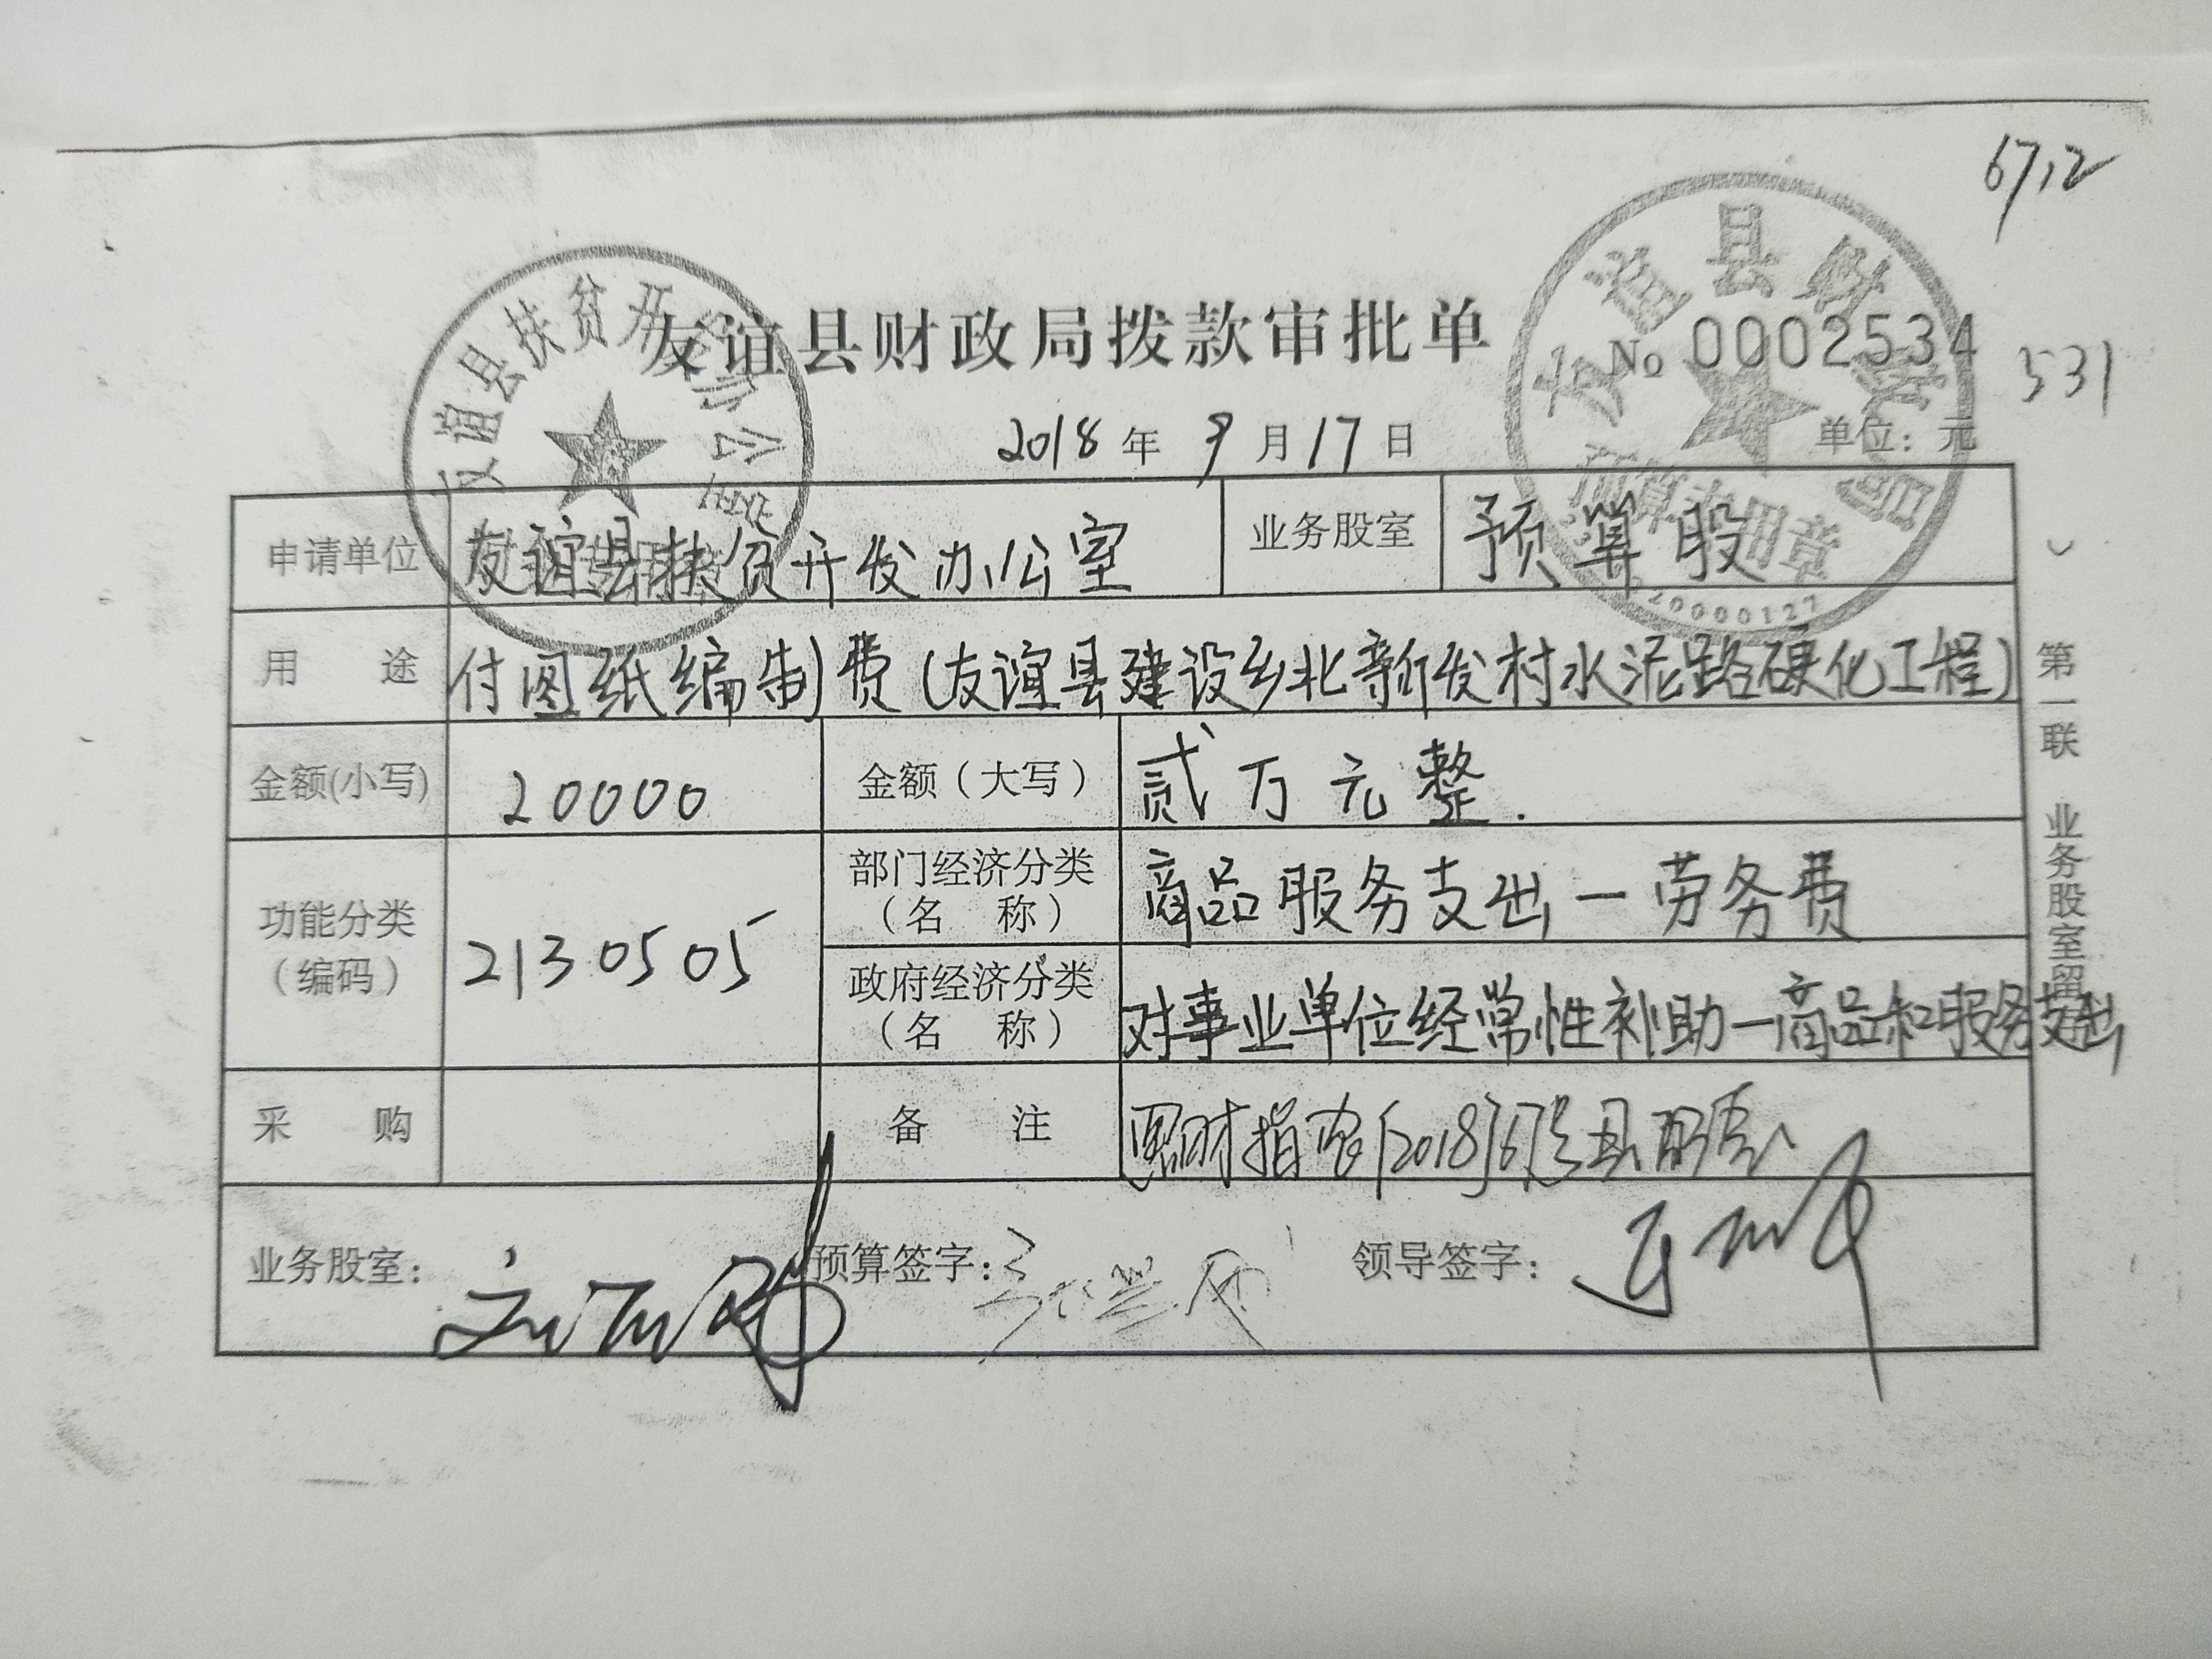 6712
友谊县财政局拨款审批单
No 0002534
531
2018年9月17日
单位：元
申请单位 友谊县扶贫开发办公室 业务股室 预算股
用途 付图纸编制费(友谊县建设乡北新发村水泥路硬化工程)
金额(小写) 20000 金额(大写) 贰万元整.
功能分类(编码) 2130505 部门经济分类(名称) 商品服务支出-劳务费
政府经济分类(名称) 对事业单位经常性补助-商品和服务支出
采购 备注 财指 [2018]67号县配套
业务股室： 预算签字： 领导签字：
第一联 业务股室留
友谊县扶贫开 办公室
友谊县财
预算专用章
20000127